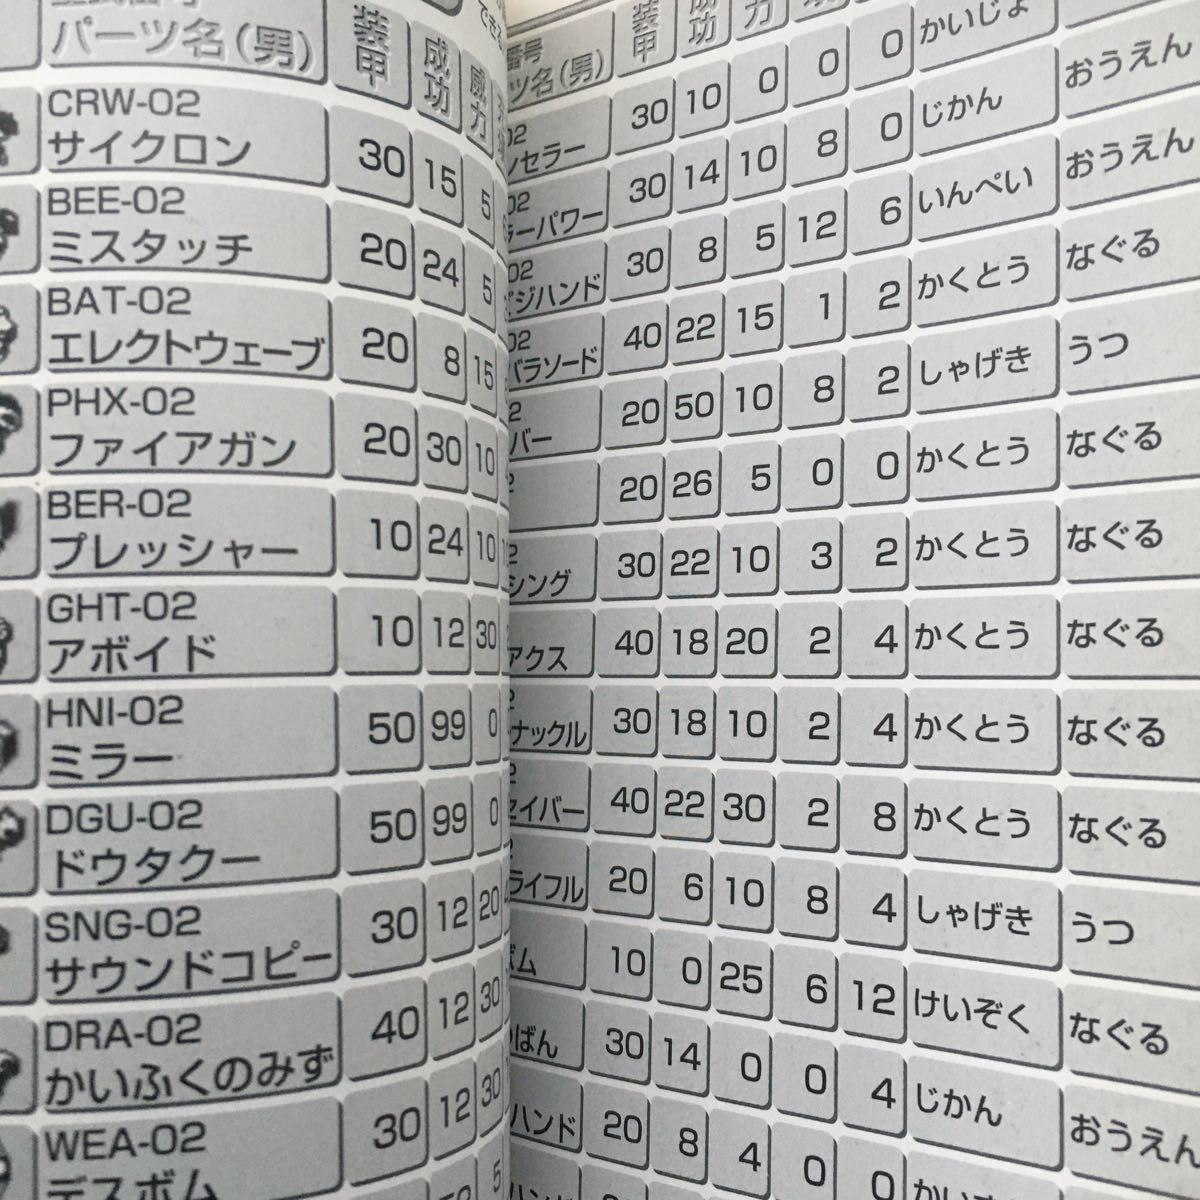 パーツ名(男) 装甲 成功 威力
CRW-02
サイクロン 30 15 5
BEE-02
ミスタッチ 20 24 5
BAT-02
エレクトウェーブ 20 8 15
PHX-02
ファイアガン 20 30 10
BER-02
プレッシャー 10 24 10
GHT-02
アボイド 10 12 30
HNI-02
ミラー 50 99 0
DGU-02
ドウタクー 50 99 0
SNG-02
サウンドコピー 30 12 20
DRA-02
かいふくのみず 40 12 30
WEA-02
デスボム 30 12 30
番号
ツ名(男) 装甲 成功 力
02
ンセラー 30 10 0 0 0 かいじょ おうえん
02
ラーパワー 30 14 10 8 0 じかん おうえん
02
ビジハンド 30 8 5 12 6 いんぺい なぐる
02
バラソード 40 22 15 1 2 かくとう なぐる
2
バー 20 50 10 8 2 しゃげき うつ
2
20 26 5 0 0 かくとう なぐる
2
シング 30 22 10 3 2 かくとう なぐる
アクス 40 18 20 2 4 かくとう なぐる
2
ナックル 30 18 10 2 4 かくとう なぐる
2
セイバー 40 22 30 2 8 かくとう なぐる
ライフル 20 6 10 8 4 しゃげき うつ
ボム 10 0 25 6 12 けいぞく なぐる
ばん 30 14 0 0 4 じかん おうえん
ハンド 20 8 4 0 0